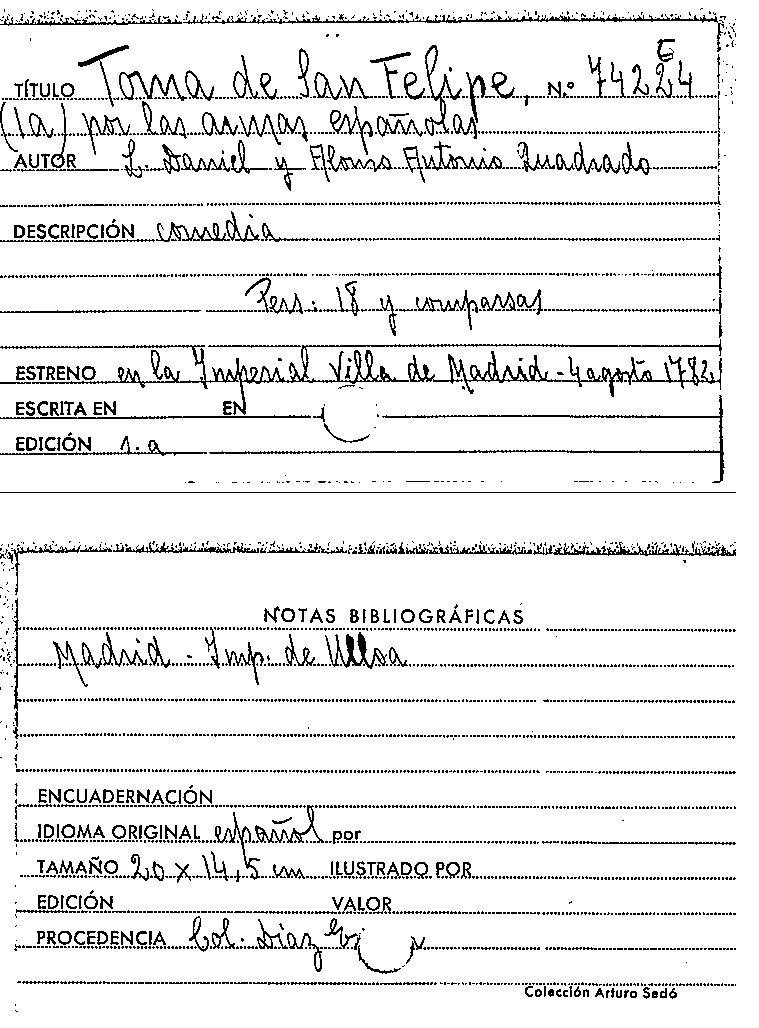 TÍTULO Toma de San Felipe, N.º 74224
(la) por las armas españolas
AUTOR L. Daniel y Alonso Antonio Quadrado
DESCRIPCIÓN comedia
Pers: 18 y comparsas
ESTRENO en la Imperial Villa de Madrid - 4 agosto 1782
ESCRITA EN EN
EDICIÓN 1.a
NOTAS BIBLIOGRÁFICAS
Madrid - Imp. de Ulloa
ENCUADERNACIÓN
IDIOMA ORIGINAL español por
TAMAÑO 20 x 14,5 cm ILUSTRADO POR
EDICIÓN VALOR
PROCEDENCIA Col. Díaz
Colección Arturo Sedó